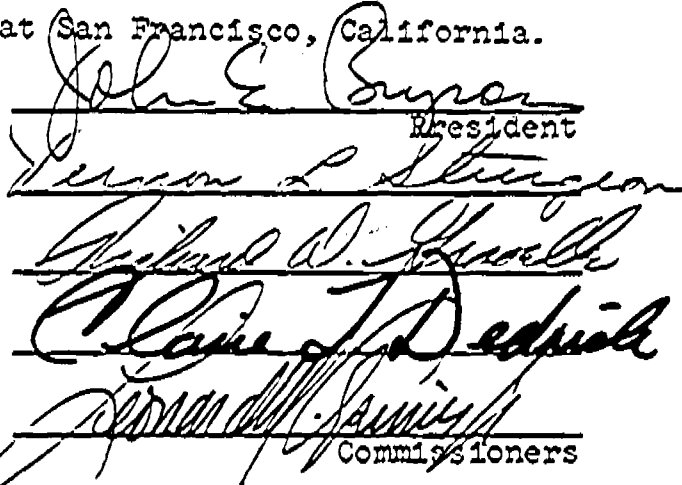 at San Francisco, California.
John E Bryson
President
Vernon L Sturgeon
Richard D. Gravelle
Claire T. Dedrick
Leonard M. Grimes Jr
Commissioners